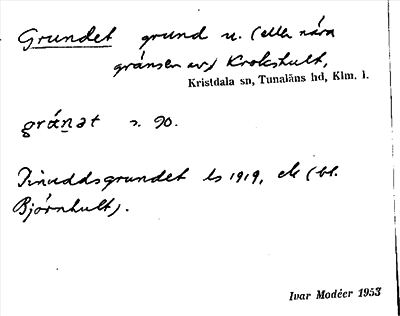 Grundet grund u. (eller nära
gränsen av) Krokshult,
Kristdala sn, Tunaläns hd, Klm. l.
gránət s. 90.
Tinuddsgrundet ls 1919, ek (bl.
Björnhult).
Ivar Modéer 1953